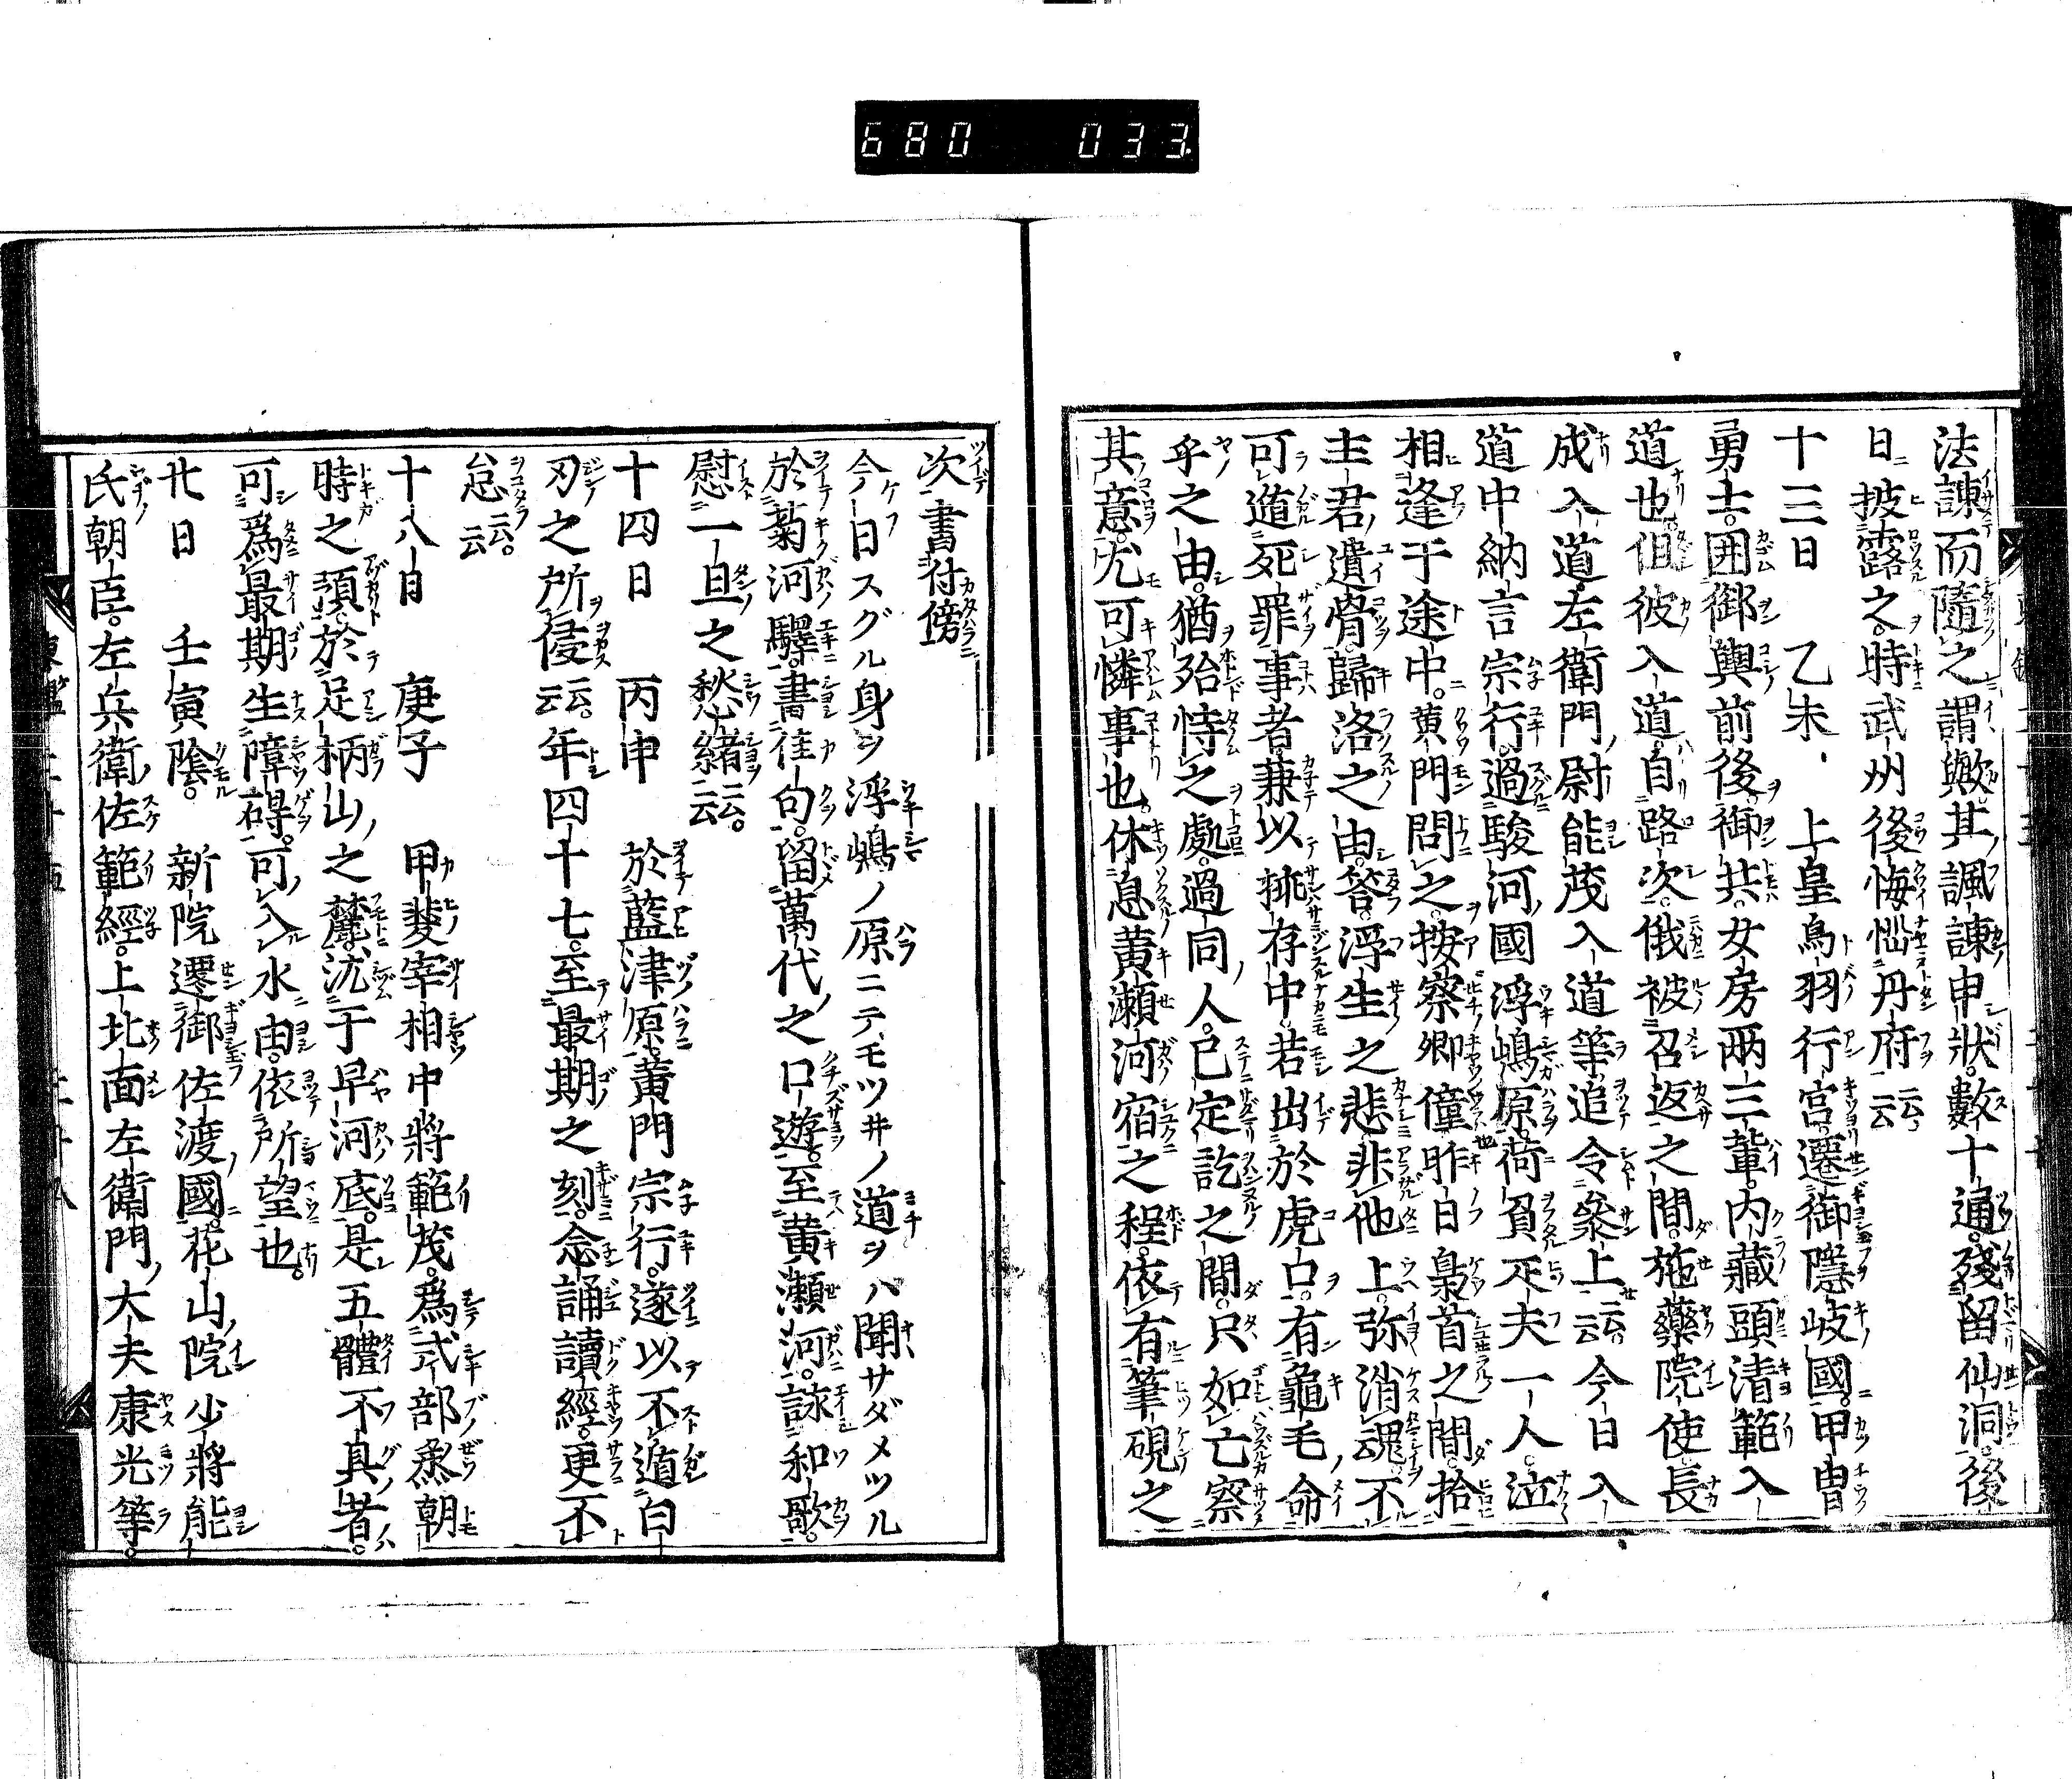 680 033
法諫而隨之謂歟其諷諫申狀數十通殘留仙洞後
日披露之時武州後悔惱丹府云云
十三日 乙未 上皇鳥羽行宮遷御隱岐國甲冑
勇士囲御輿前後御共女房兩三輩内藏頭清範入
道也但彼入道自路次俄被召返之間施藥院使長
成入道左衛門尉能茂入道等追令參上云云今日入
道中納言宗行過駿河國浮嶋原荷負疋夫一人泣
相逢于途中黄門問之按察卿僮昨日梟首之間拾
主君遺骨歸洛之由答浮生之悲非他上弥消魂不
可遁死罪事者兼以挑存中若出於虎口有龜毛命
乎之由猶殆恃之處過同人已定訖之間只如亡察
其意尤可憐事也休息黄瀬河宿之程依有筆硯之
次書付傍
今日スグル身ヲ浮嶋ノ原ニテモツ井ノ道ヲハ聞サダメツル
於菊河驛書佳句留萬代之口遊至黄瀬河詠和歌
慰一旦之愁緒云云
十四日 丙申 於藍津原黄門宗行遂以不遁白
刃之所侵云云年四十七至最期之刻念誦讀經更不
怠云云
十八日 庚子 甲斐宰相中將範茂爲式部烝朝
時之預於足柄山之麓沈于早河底是五體不具者
可爲最期生障碍可入水由依所望也
廿日 壬寅陰 新院遷御佐渡國花山院少將能
氏朝臣左兵衛佐範經上北面左衛門大夫康光等